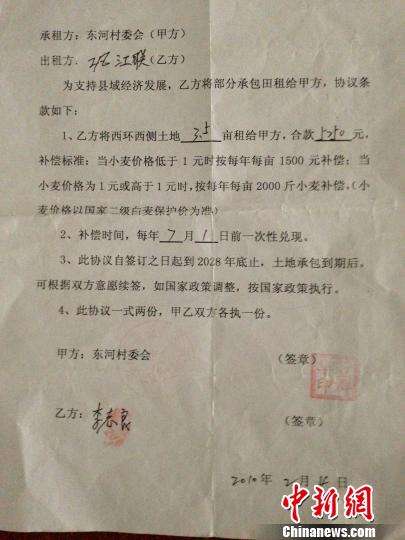 承租方：东河村委会（甲方）
出租方．江联(乙方)
为支持县域经济发展，乙方将部分承包田租给甲方，协议条
款如下：
1、乙方将西环西侧土地 3.5 亩租给甲方，合款 5250 元，
补偿标准：当小麦价格低于 1 元时按每年每亩 1500 元补偿；当
小麦价格为 1 元或高于 1 元时，按每年每亩 2000 斤小麦补偿。（小
麦价格以国家二级白麦保护价为准）
2、补偿时间，每年 7 月 1 日前一次性兑现。
3、此协议自签订之日起到 2028 年底止，土地承包到期后，
可根据双方意愿续签，如国家政策调整，按国家政策执行。
4、此协议一式两份，甲乙双方各执一份。
甲方：东河村委会 （签章）
乙方：李志良 （签章）
2010 年 2 月 日
中新网
Chinanews.com